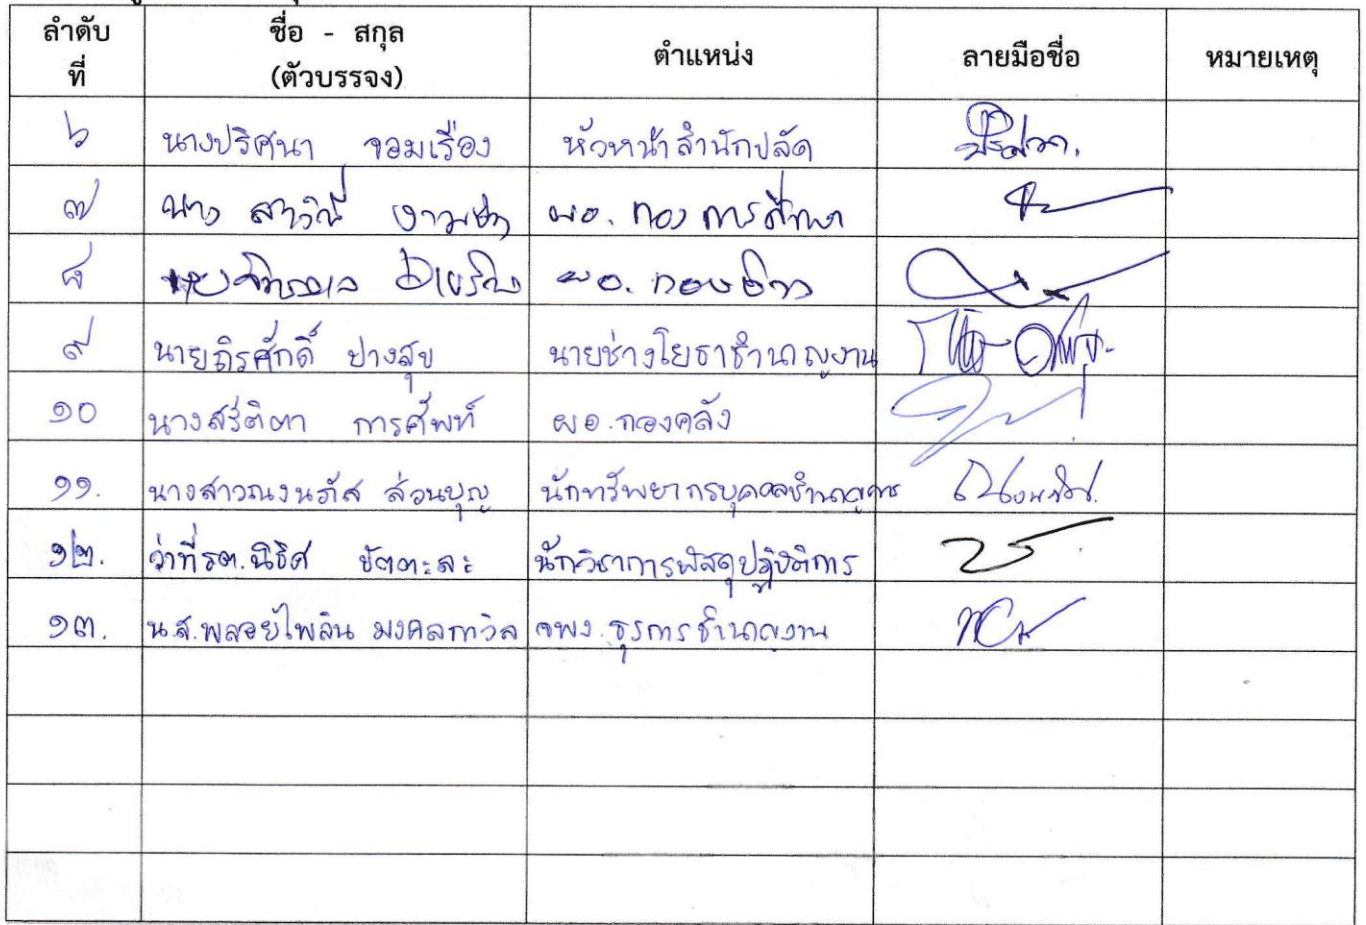 ลำดับ ชื่อ - สกุล ตำแหน่ง ลายมือชื่อ หมายเหตุ
ที่ (ตัวบรรจง)
๖ นางปริศนา จอมเรื่อง หัวหน้าสำนักปลัด
๗ นาง ผอ. กอง การศึกษา
๘ ผอ. กอง
๙ นายถิรศักดิ์ ปางสุข นายช่างโยธาชำนาญงาน
๑๐ นางสริตตา การศัพท์ ผอ.กองคลัง
๑๑. นางสาวณงนภัส ล่วนบุญ นักทรัพยากรบุคคลชำนาญการ
๑๒. ว่าที่รต.นิธิศ ขัตตะละ นักวิชาการพัสดุปฏิบัติการ
๑๓. น.ส.พลอยไพลิน มงคลกาวิล จพง.ธุรการชำนาญงาน